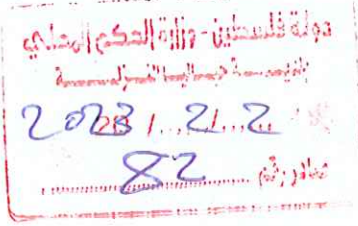 دولة فلسطين - وزارة الحكم المحلي
2023 / 2 / 2
صادر رقم 82